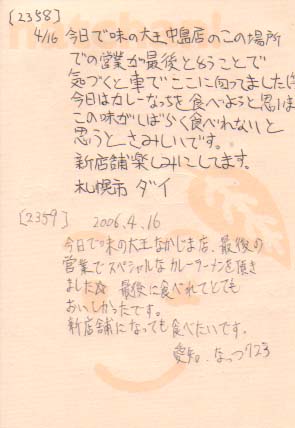 [2358]
4/16 今日で味の大王中島店のこの場所
での営業が最後と言うことで
気づくと車でここに向ってました
今日はカレーなっとを食べようと思います
この味がしばらく食べれないと
思うと、さみしいです。
新店舗楽しみにしてます。
札幌市 ダイ
[2359] 2006.4.16
今日で味の大王なかじま店、最後の
営業でスペシャルなカレーラーメンを頂き
ました☆ 最後に食べれてとても
おいしかったです。
新店舗になっても食べたいです。
愛知. なっつ723